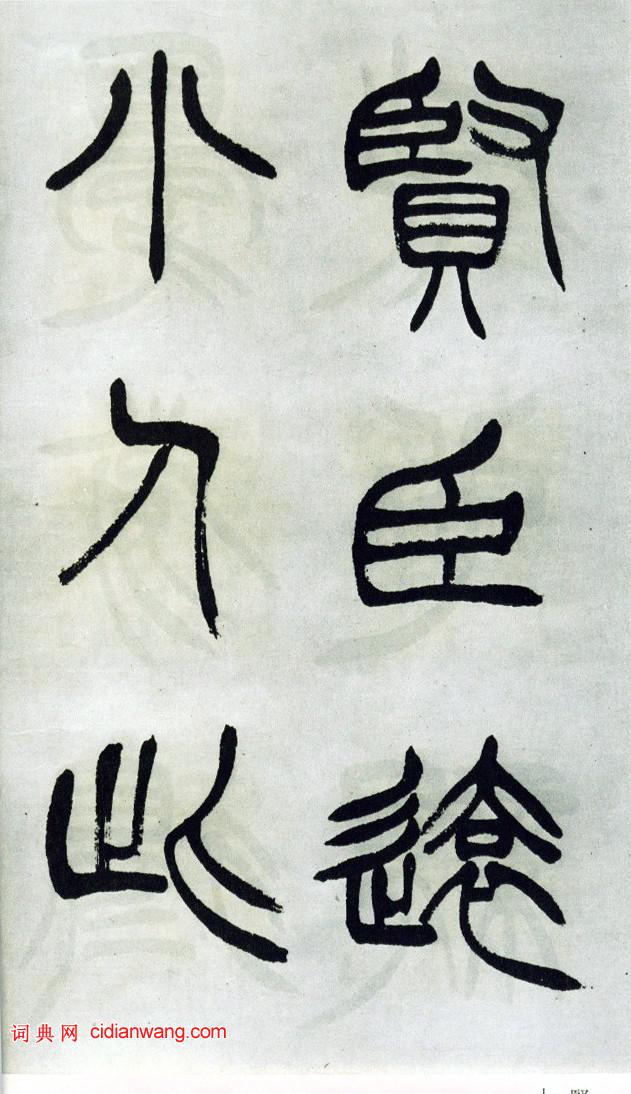 賢臣遠
小人此
词典网 cidianwang.com